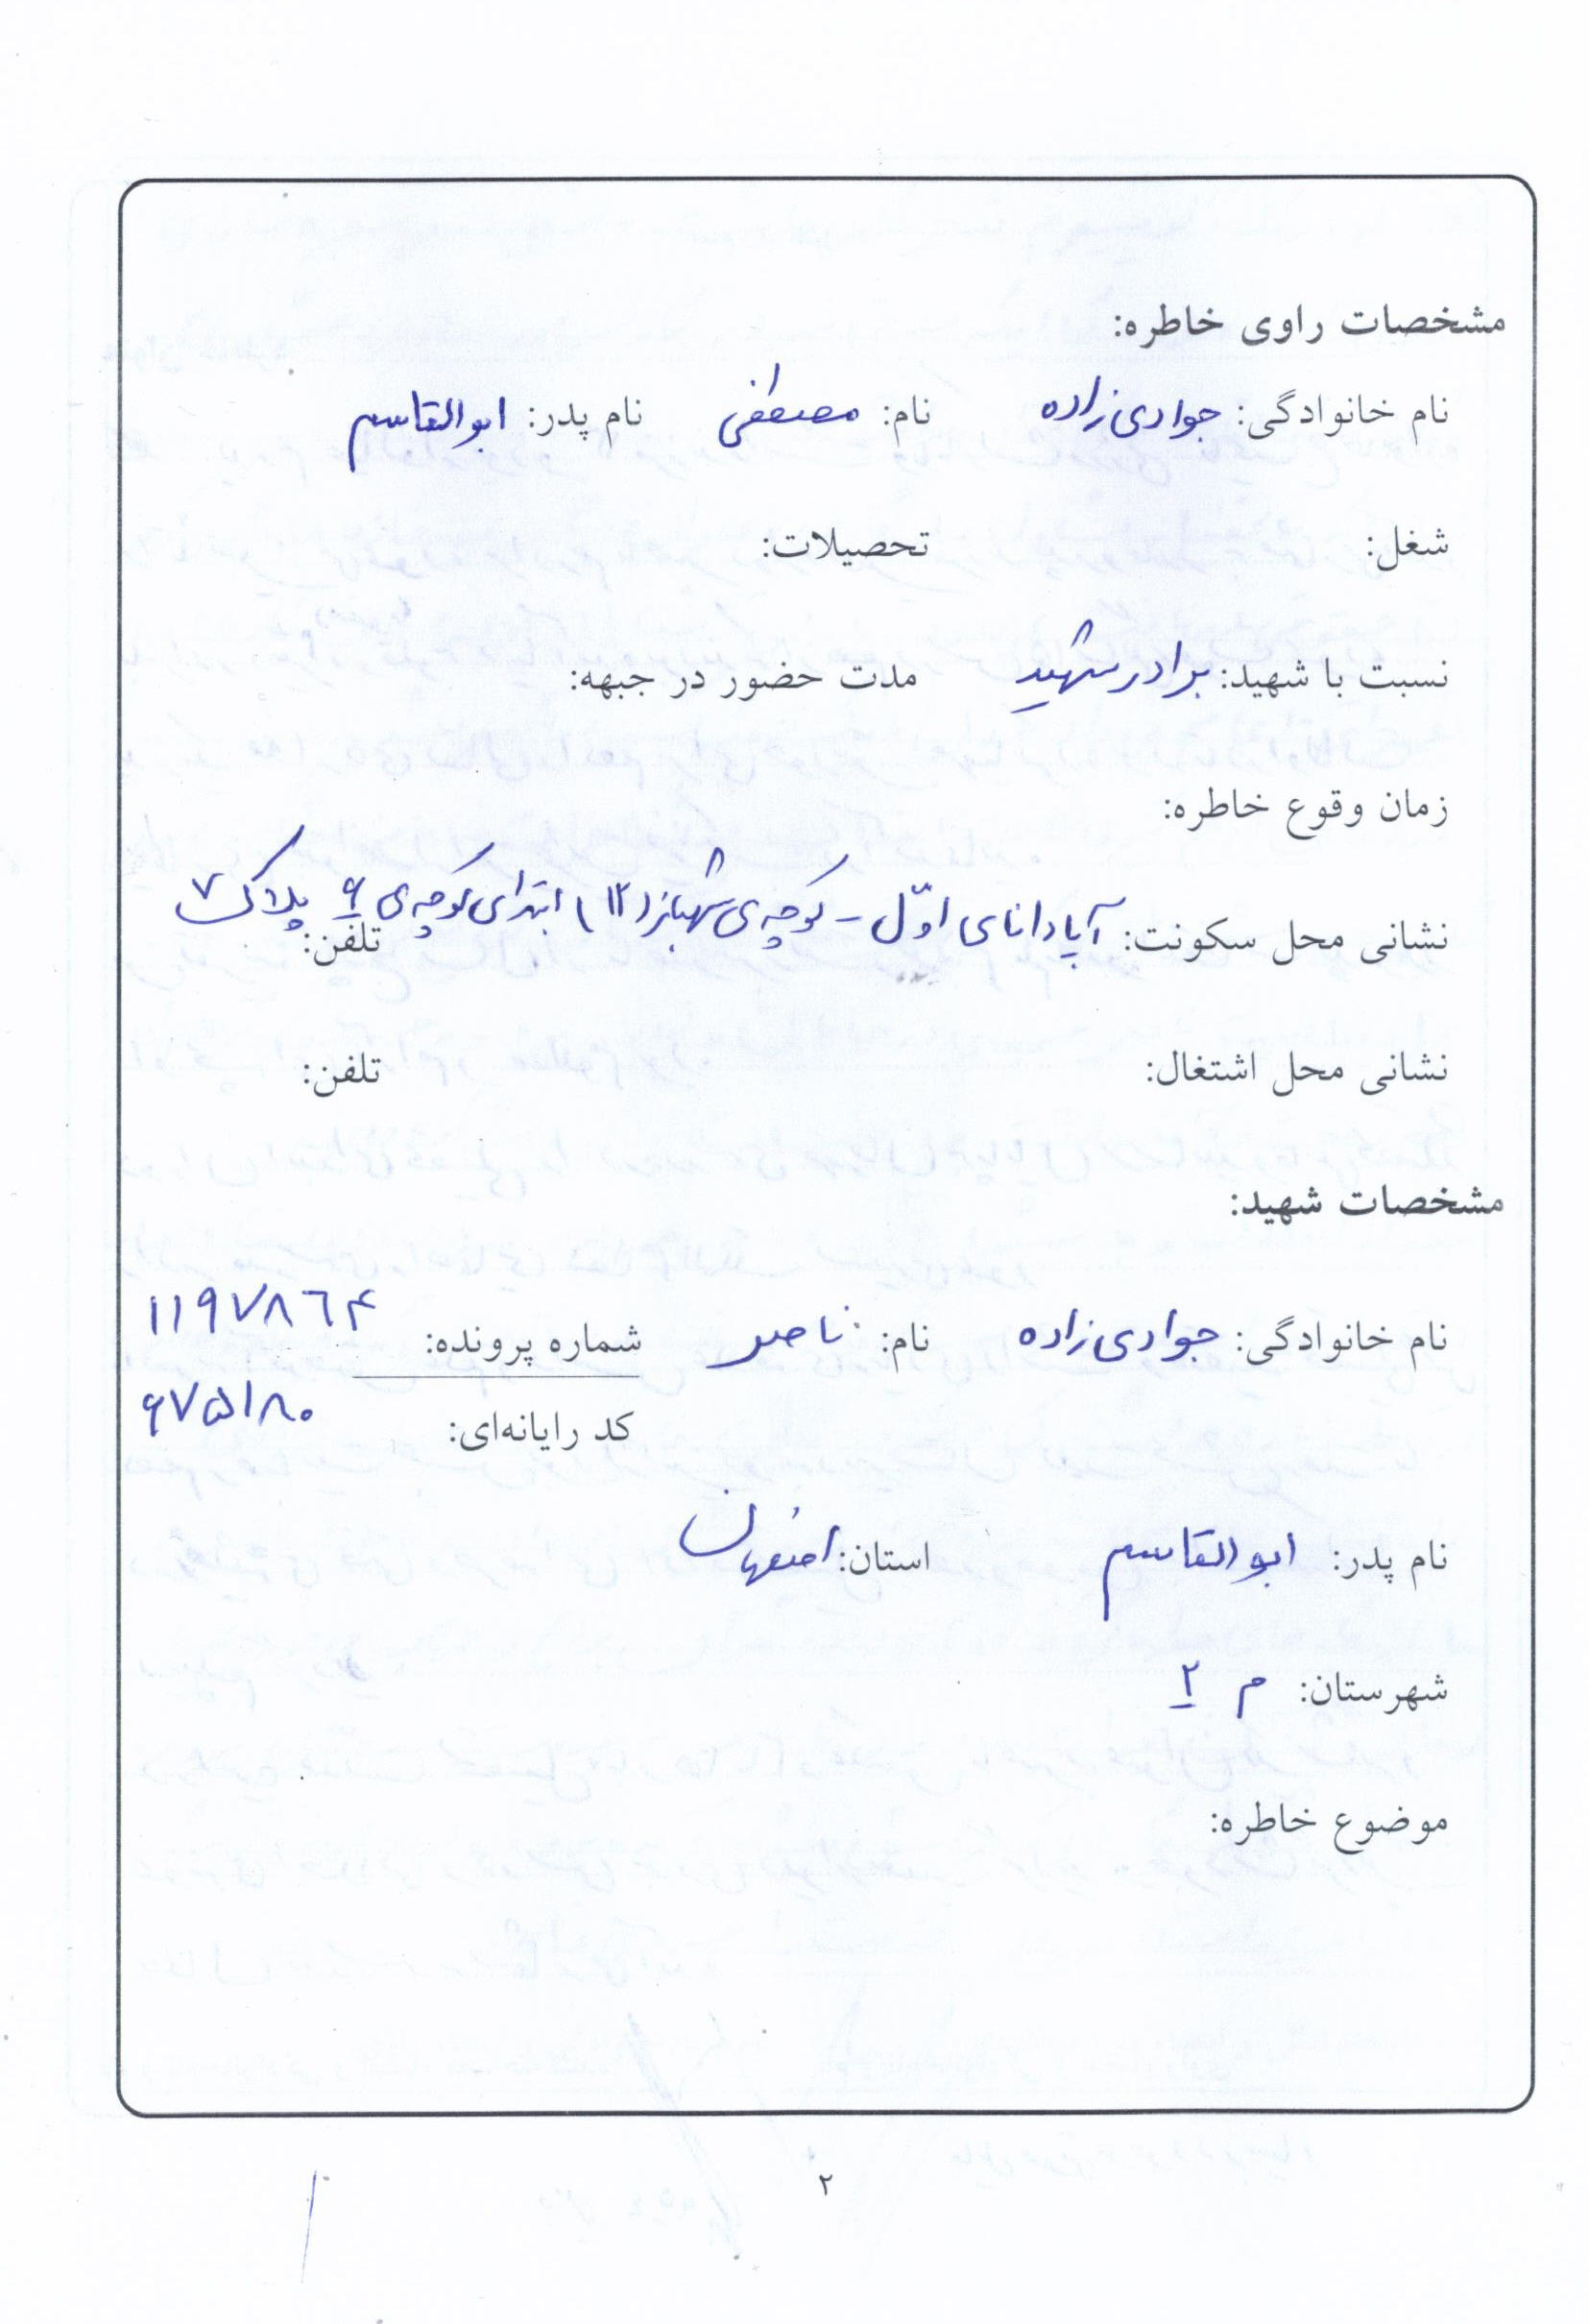 مشخصات راوی خاطره:
نام خانوادگی: جوادی‌زاده نام: مصطفی نام پدر: ابوالقاسم
شغل: تحصیلات:
نسبت با شهید: برادر شهید مدت حضور در جبهه:
زمان وقوع خاطره:
نشانی محل سکونت: آپادانای اوّل - کوچه‌ی شهناز (۱۲) ابتدای کوچه‌ی ۶ پلاک ۷ تلفن:
نشانی محل اشتغال: تلفن:
مشخصات شهید:
نام خانوادگی: جوادی‌زاده نام: ناصر شماره پرونده: ۱۱۹۷۸۶۴
کد رایانه‌ای: ۶۷۵۱۸۰
نام پدر: ابوالقاسم استان: اصفهان
شهرستان: م ۲
موضوع خاطره:
۲